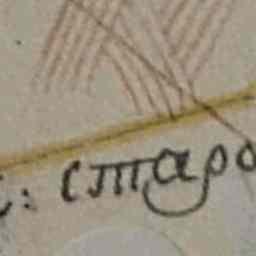 : старо